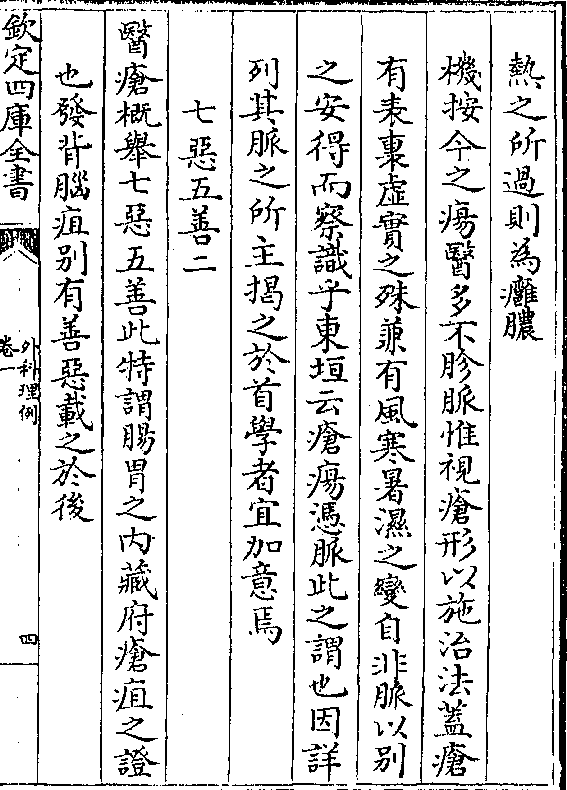 熱之所過則為癰膿
機按今之瘍醫多不胗脈惟視瘡形以施治法蓋瘡
有表裏虚實之殊兼有風寒暑濕之變自非脈以別
之安得而察識乎東垣云瘡瘍憑脈此之謂也因詳
列其脈之所主揭之於首學者宜加意焉
七惡五善二
醫瘡概舉七惡五善此特謂腸胃之内藏府瘡疽之證
也發背腦疽别有善惡載之於後
欽定四庫全書
外科理例
卷一
四